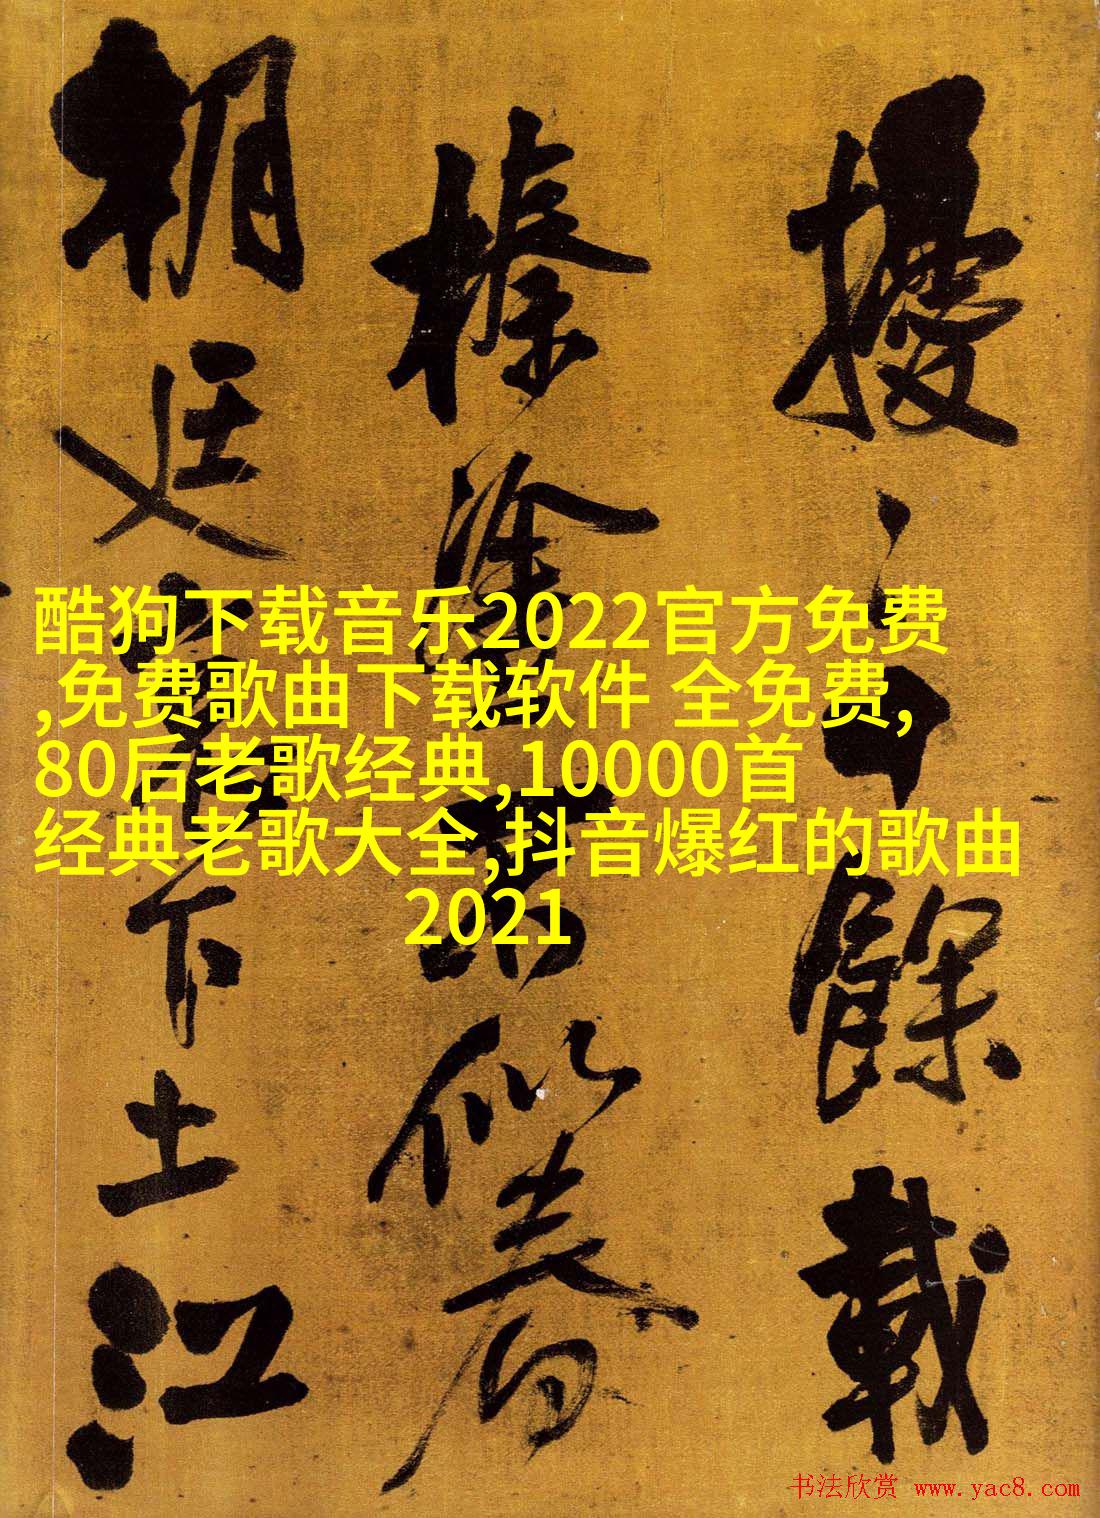 酷狗下载音乐2022官方免费
,免费歌曲下载软件 全免费,
80后老歌经典,10000首
经典老歌大全,抖音爆红的歌曲
2021
擾餘載
榛塗
朝廷下土江
书法欣赏 www.yac8.com